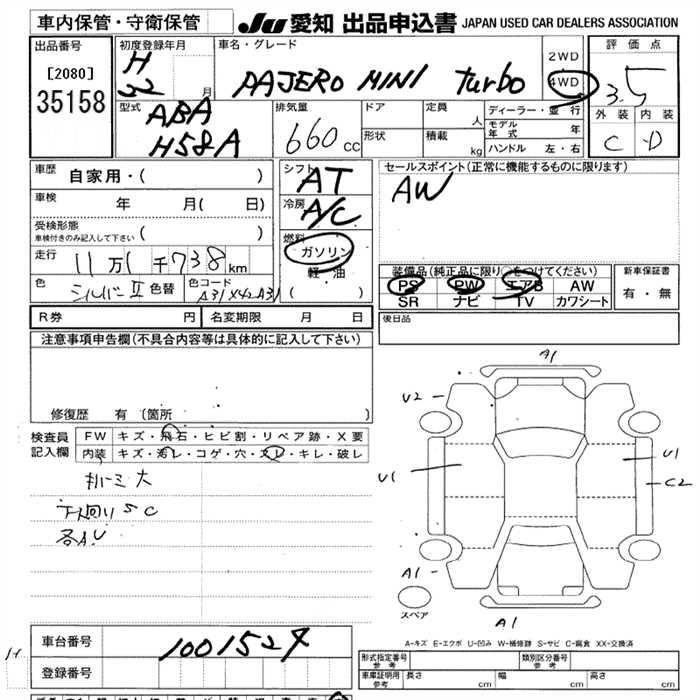 車内保管・守衛保管
JU 愛知 出品申込書 JAPAN USED CAR DEALERS ASSOCIATION
出品番号
[2080]
35158
初度登録年月
H
22 月
車名・グレード
PAJERO MINI turbo
2WD
4WD
評価点
3.5
外装 内装
C D
型式
ABA
H58A
排気量
660 cc
ドア
形状
定員 人
積載 kg
ディーラー・並行
モデル年式 年
ハンドル 左・右
車歴 自家用・( )
車検 年 月( 日)
受検形態
車検付きのみ記入して下さい ( )
走行 11万1千738km
色 シルバーII 色替
色コード A31X42A31
シフト AT
冷房 A/C
燃料
ガソリン
軽油
( )
セールスポイント(正常に機能するものに限ります)
AW
装備品(純正品に限り○をつけてください)
PS PW エアB AW
SR ナビ TV カワシート
新車保証書
有・無
R券 円
名変期限 月 日
後日品
注意事項申告欄(不具合内容等は具体的に記入して下さい)
修復歴 有〔箇所 〕
検査員
記入欄
FW キズ・飛石・ヒビ割・リペア跡・X要
内装 キズ・汚レ・コゲ・穴・スレ・キレ・破レ
大
下回りSC
各AU
A1
U2
U1
U1
C2
A1
A1
スペア
A-キズ E-エクボ U-凹み W-補修跡 S-サビ C-腐食 XX-交換済
車台番号 1001527
登録番号
形式指定番号
参考
類別区分番号
参考
車庫証明用
参考
長さ cm
幅 cm
高さ cm